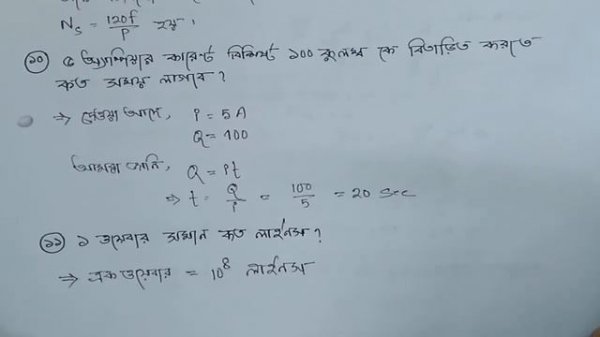 N_S = 120f/P হয়।
(১০) ৫ অ্যাম্পিয়ার কারেন্ট বিশিষ্ট ১০০ কুলম্ব কে বিতাড়িত করতে
কত সময় লাগবে?
⇒ দেওয়া আছে, P = 5A
Q = 100
আমরা জানি, Q = Pt
⇒ t = Q/P = 100/5 = 20 sec
(১১) ১ ওয়েবার সমান কত লাইনস?
⇒ এক ওয়েবার = 10⁸ লাইনস